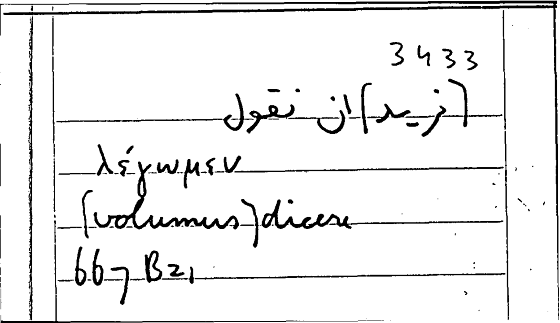 3433
[نريد] ان نقول
λέγωμεν
[volumus] dicere
667 B21